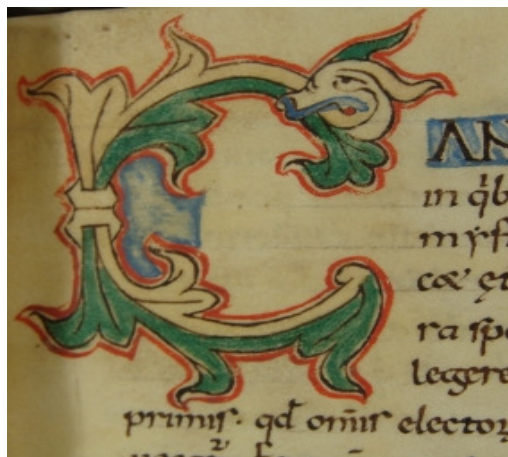 C
AN
in q̇b
myſ
coę ęt
ra ſp
legere
primis· qd̄ om̄is elector